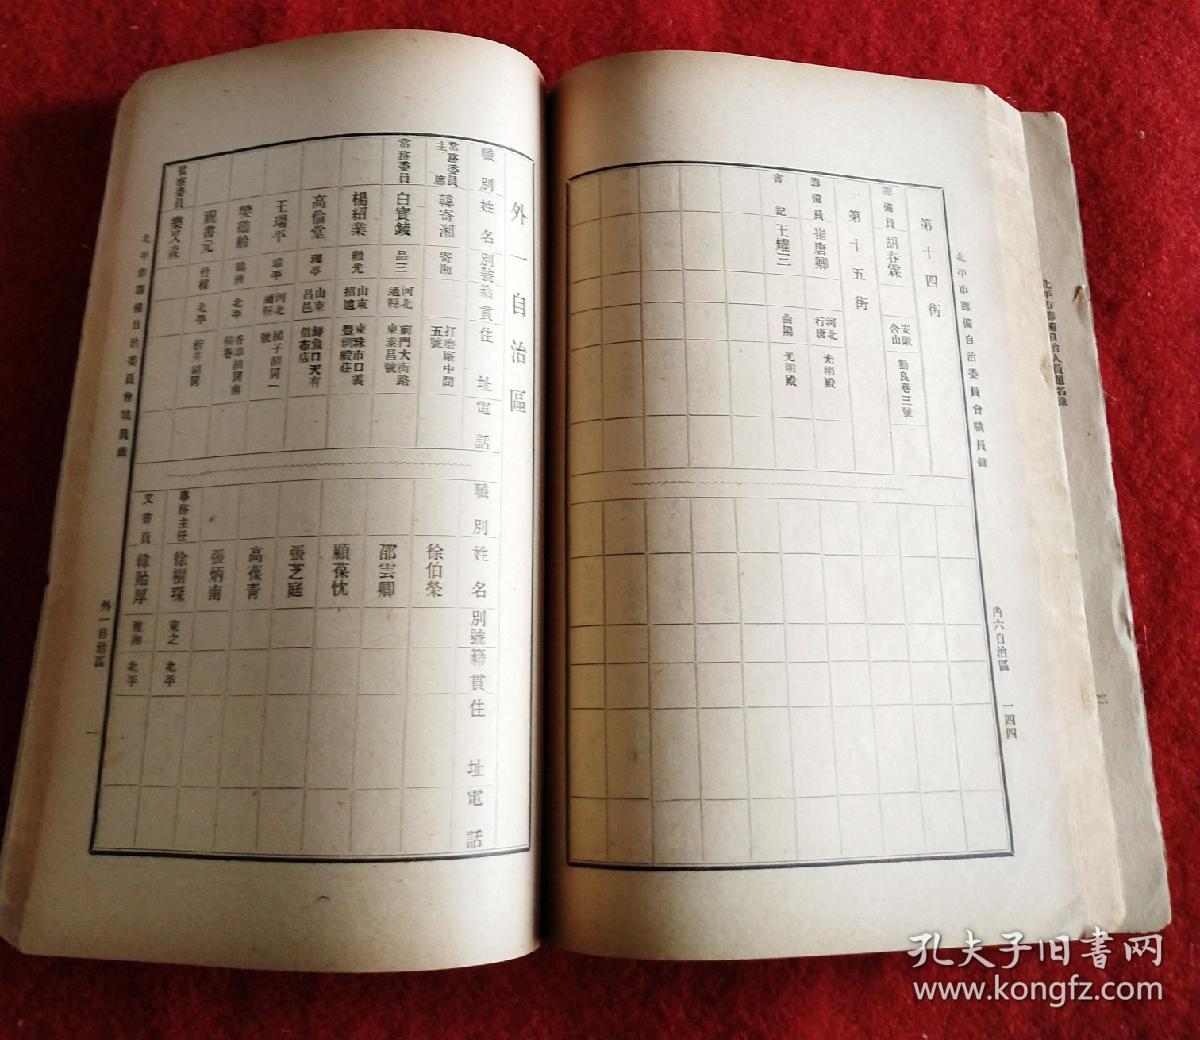 北平市籌備自治委員會職員錄
內六自治區
一四四
第十四街
籌備員 胡春霖 安徽合山 勤良巷三號
第十五街
籌備員 崔唐卿 河北行唐 光明殿
書記 王耀三 曲陽 光明殿
外一自治區
職別 姓名 別號 籍貫 住址 電話
常務委員主席 韓寄湘 寄湘 打磨廠中間五號
常務委員 白寶鉞 品三 河北通縣 前門大街路東泰昌號
楊紹業 繼先 山東招遠 東珠市口義豐綢緞莊
高倫堂 理亭 山東昌邑 鮮魚口天有信布店
王瑞平 瑞平 河北通縣
北平
祝書元 竹樓 北平
監察委員
職別 姓名 別號 籍貫 住址 電話
徐伯榮
邵雲卿
顧葆忱
張芝庭
高葆青
張炳南
事務主任 徐樹琛 東之 北平
文書員 韓貽厚 雅湘 北平
北平市籌備自治委員會職員錄
外一自治區
一
孔夫子旧书网
www.kongfz.com